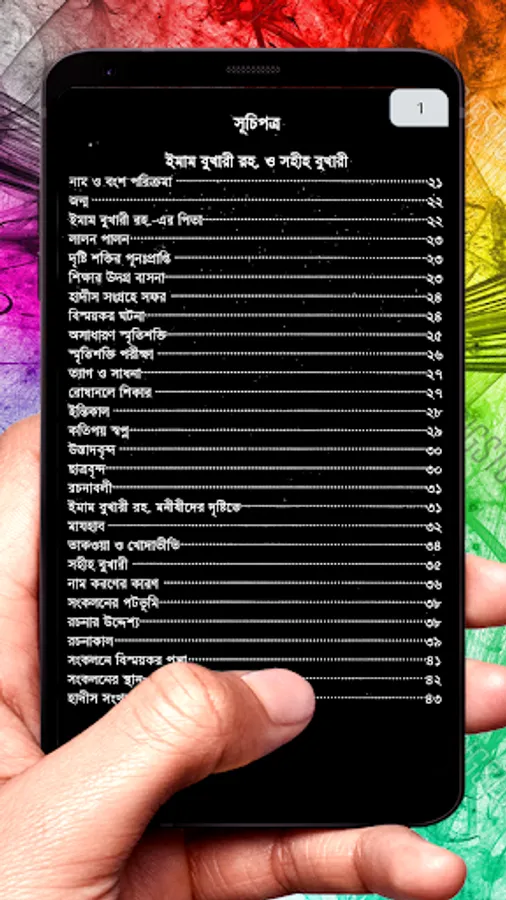 1
সূচিপত্র
ইমাম বুখারী রহ. ও সহীহ বুখারী
নাম ও বংশ পরিক্রমা ২১
জন্ম ২২
ইমাম বুখারী রহ.-এর পিতা ২২
লালন পালন ২৩
দৃষ্টি শক্তির পুনঃপ্রাপ্তি ২৩
শিক্ষার উদগ্র বাসনা ২৩
হাদীস সংগ্রহে সফর ২৪
বিস্ময়কর ঘটনা ২৪
অসাধারণ স্মৃতিশক্তি ২৫
স্মৃতিশক্তি পরীক্ষা ২৬
ত্যাগ ও সাধনা ২৭
রোষানলে শিকার ২৭
ইন্তিকাল ২৮
কতিপয় স্বপ্ন ২৯
উস্তাদবৃন্দ ৩০
ছাত্রবৃন্দ ৩০
রচনাবলী ৩১
ইমাম বুখারী রহ. মনীষীদের দৃষ্টিতে ৩১
মাযহাব ৩২
তাকওয়া ও খোদাভীতি ৩৪
সহীহ বুখারী ৩৫
নাম করণের কারণ ৩৬
সংকলনের পটভূমি ৩৮
রচনার উদ্দেশ্য ৩৮
রচনাকাল ৩৯
সংকলনে বিস্ময়কর পন্থা ৪১
সংকলনের স্থান ৪২
হাদীস ৪৩